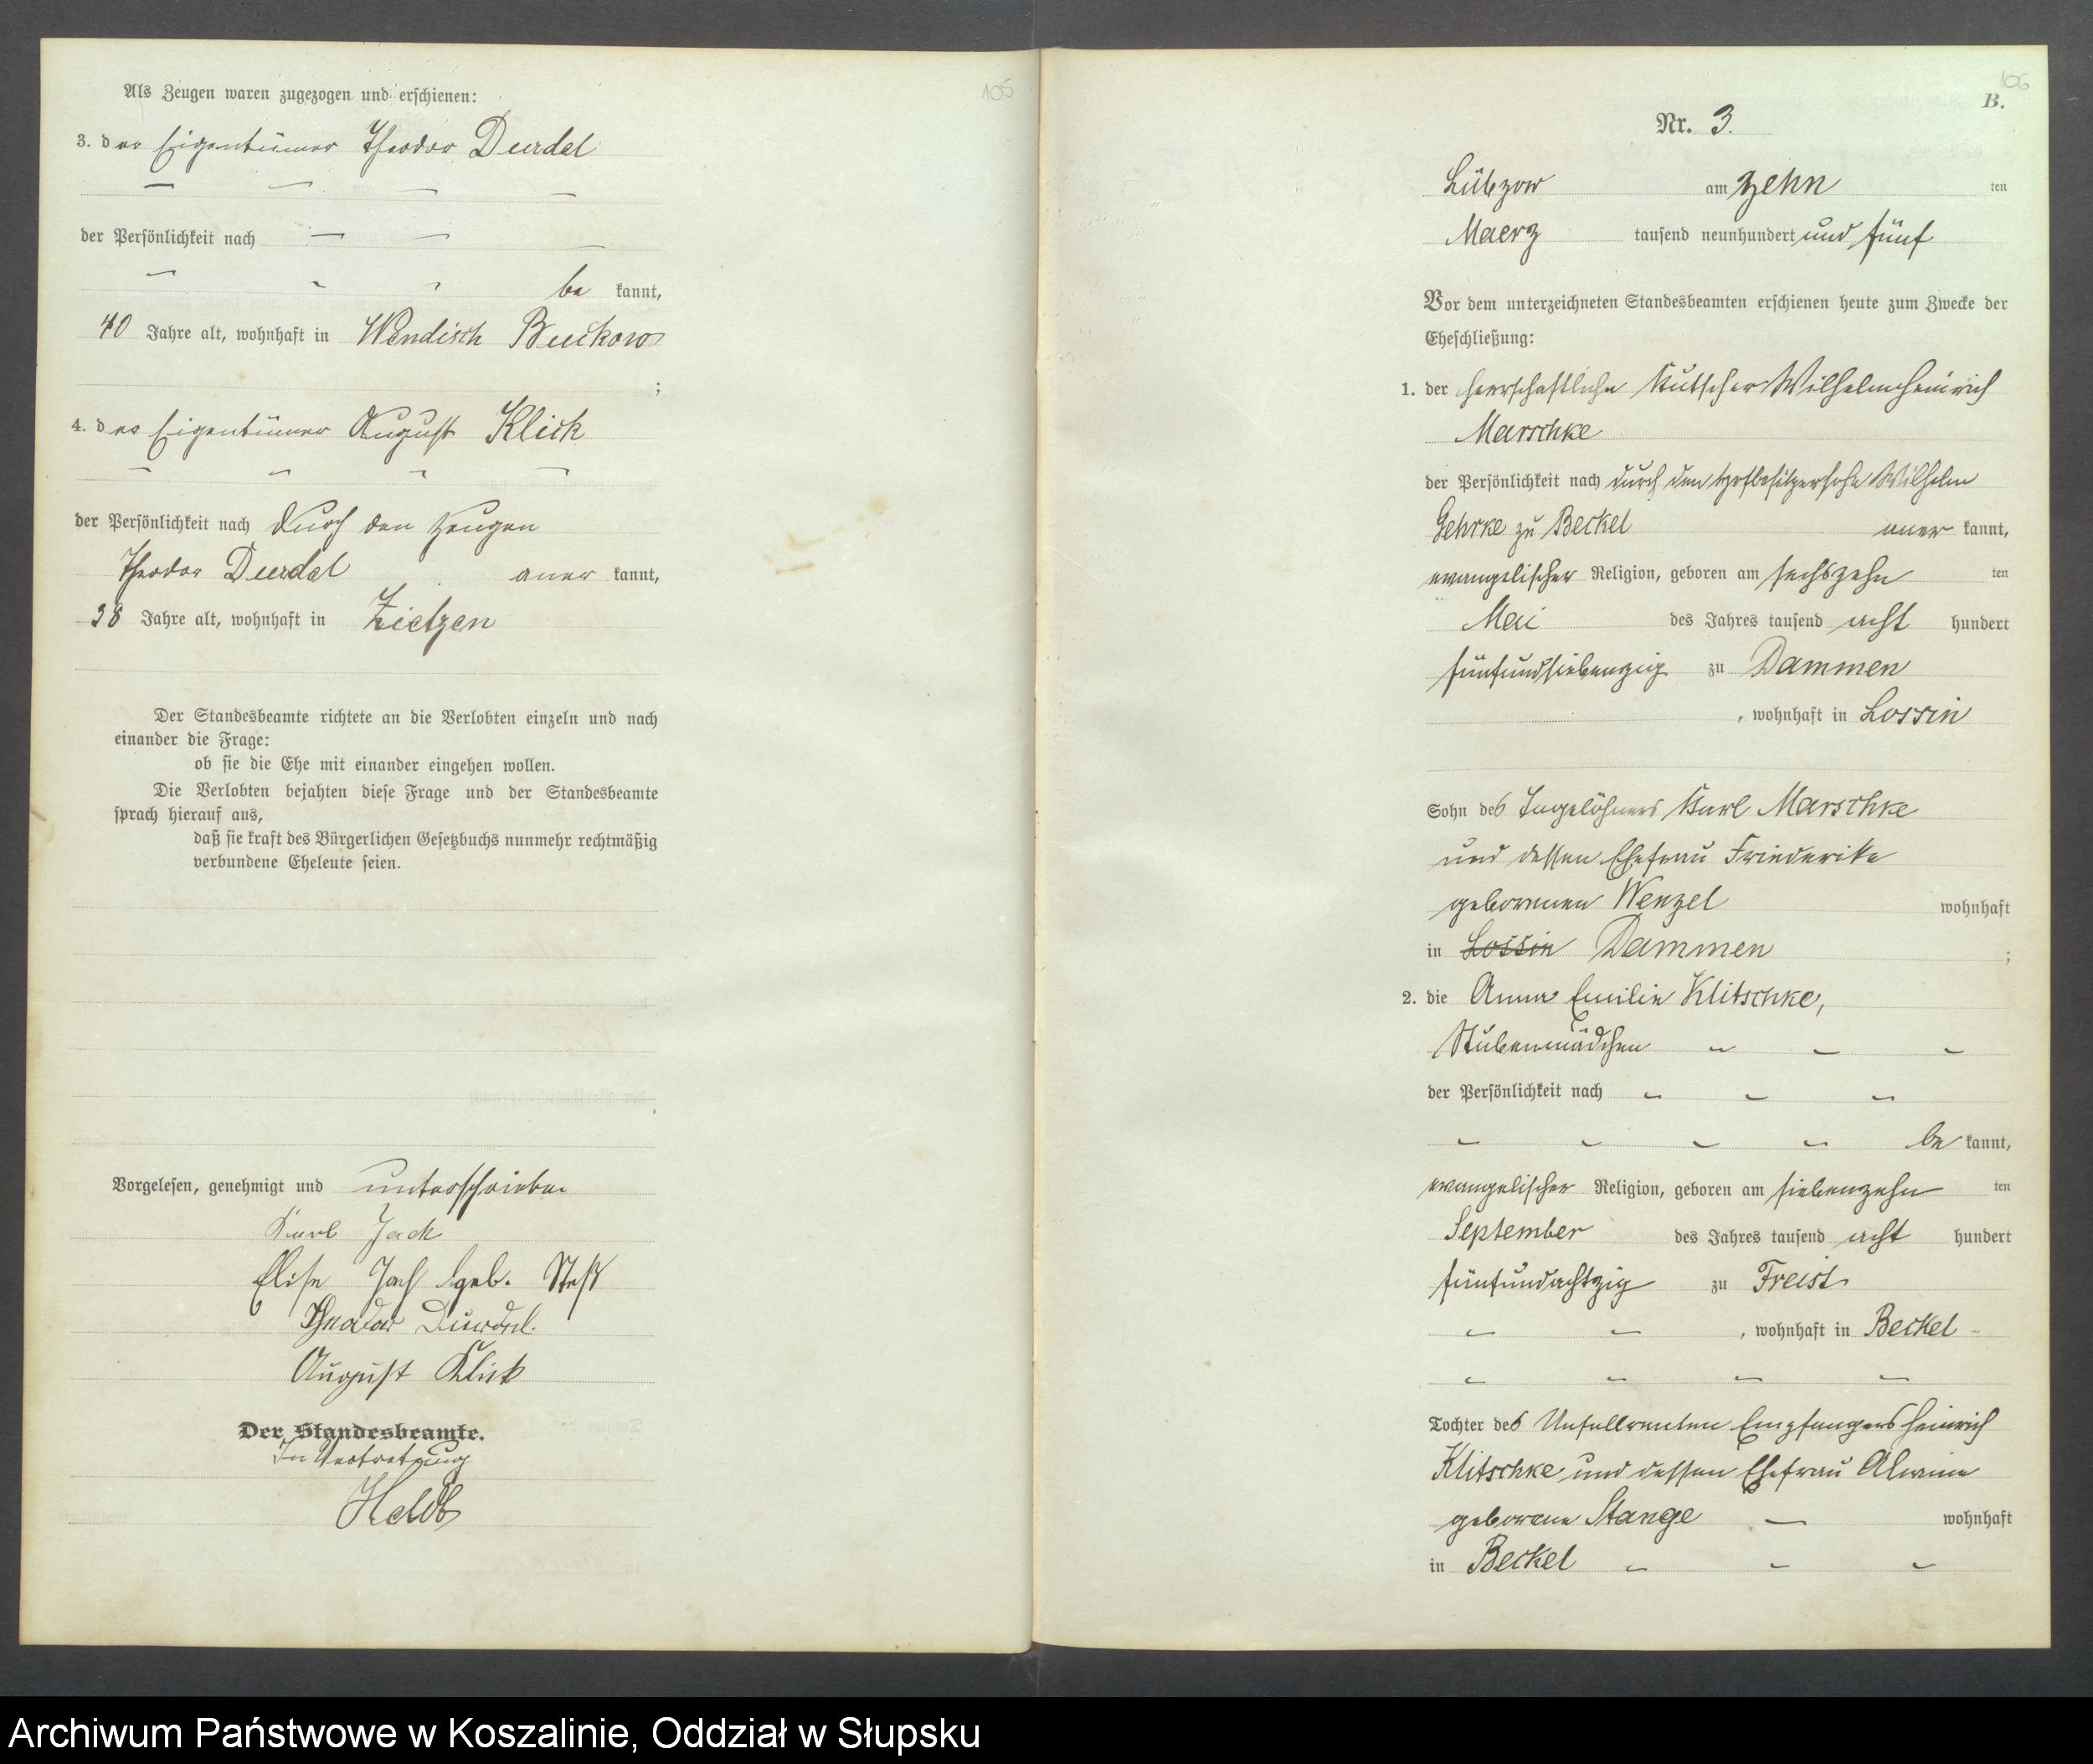 Als Zeugen waren zugezogen und erschienen:
3. der Eigentümer Theodor Durdel
der Persönlichkeit nach
be kannt,
40 Jahre alt, wohnhaft in Wendisch Buckow
;
4. der Eigentümer August Klick
der Persönlichkeit nach durch den Zeugen
Theodor Durdel aner kannt,
38 Jahre alt, wohnhaft in Zietzen
Der Standesbeamte richtete an die Verlobten einzeln und nach
einander die Frage:
ob sie die Ehe mit einander eingehen wollen.
Die Verlobten bejahten diese Frage und der Standesbeamte
sprach hierauf aus,
daß sie kraft des Bürgerlichen Gesetzbuchs nunmehr rechtmäßig
verbundene Eheleute seien.
Vorgelesen, genehmigt und unterschrieben
Karl Jack
Elise Jach geb.
Theodor Durdel.
August Klick
Der Standesbeamte.
In Vertretung
105
106
B.
Nr. 3.
Lübzow am zehn ten
Maerz tausend neunhundert und fünf
Vor dem unterzeichneten Standesbeamten erschienen heute zum Zwecke der
Eheschließung:
1. der herrschaftliche Kutscher Wilhelm Heinrich
Marschke
der Persönlichkeit nach durch den Hofbesitzersohn Wilhelm
Gehrke zu Beckel aner kannt,
evangelischer Religion, geboren am sechszehn ten
Mai des Jahres tausend acht hundert
fünfundsiebenzig zu Dammen
, wohnhaft in Lossin
Sohn des Tagelöhners Karl Marschke
und dessen Ehefrau Friederike
geborenen Wenzel wohnhaft
in Lossin Dammen ;
2. die Anna Emilie Klitschke,
Stubenmädchen
der Persönlichkeit nach
be kannt,
evangelischer Religion, geboren am siebenzehn ten
September des Jahres tausend acht hundert
fünfundachtzig zu Freist
, wohnhaft in Beckel
Tochter des Unfallrenten Empfängers Heinrich
Klitschke und dessen Ehefrau Alwine
geborene Stange wohnhaft
in Beckel
Archiwum Państwowe w Koszalinie, Oddział w Słupsku